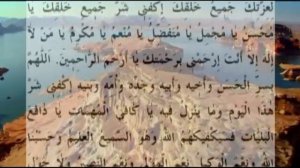 لعزتك جميع خلقك إكفني شر جميع خلقك يا
محسن يا مجمل يا متفضل يا منعم يا مكرم يا من لا
إله إلا أنت إرحمني برحمتك يا أرحم الراحمين. اللهم
بسر الحسن وأخيه وأبيه وجده وأمه وبنيه إكفني شر
هذا اليوم وما ينزل فيه يا كافي المهمات يا دافع
البليات فسيكفيكهم الله وهو السميع العليم وحسبنا
الله ونعم الوكيل نعم المولى ونعم النصير ولا حول